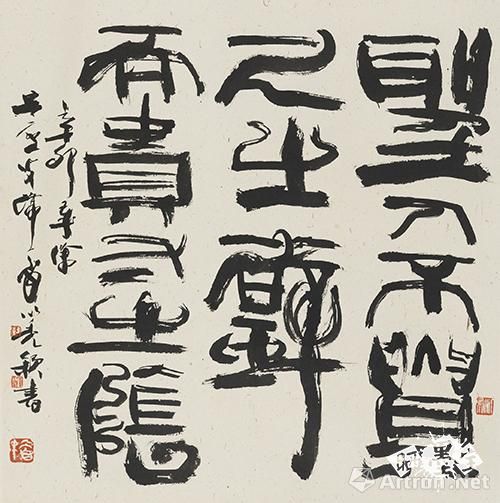 聖人不貴
尺之璧
而貴寸之陰
辛卯
書
Artron.Net